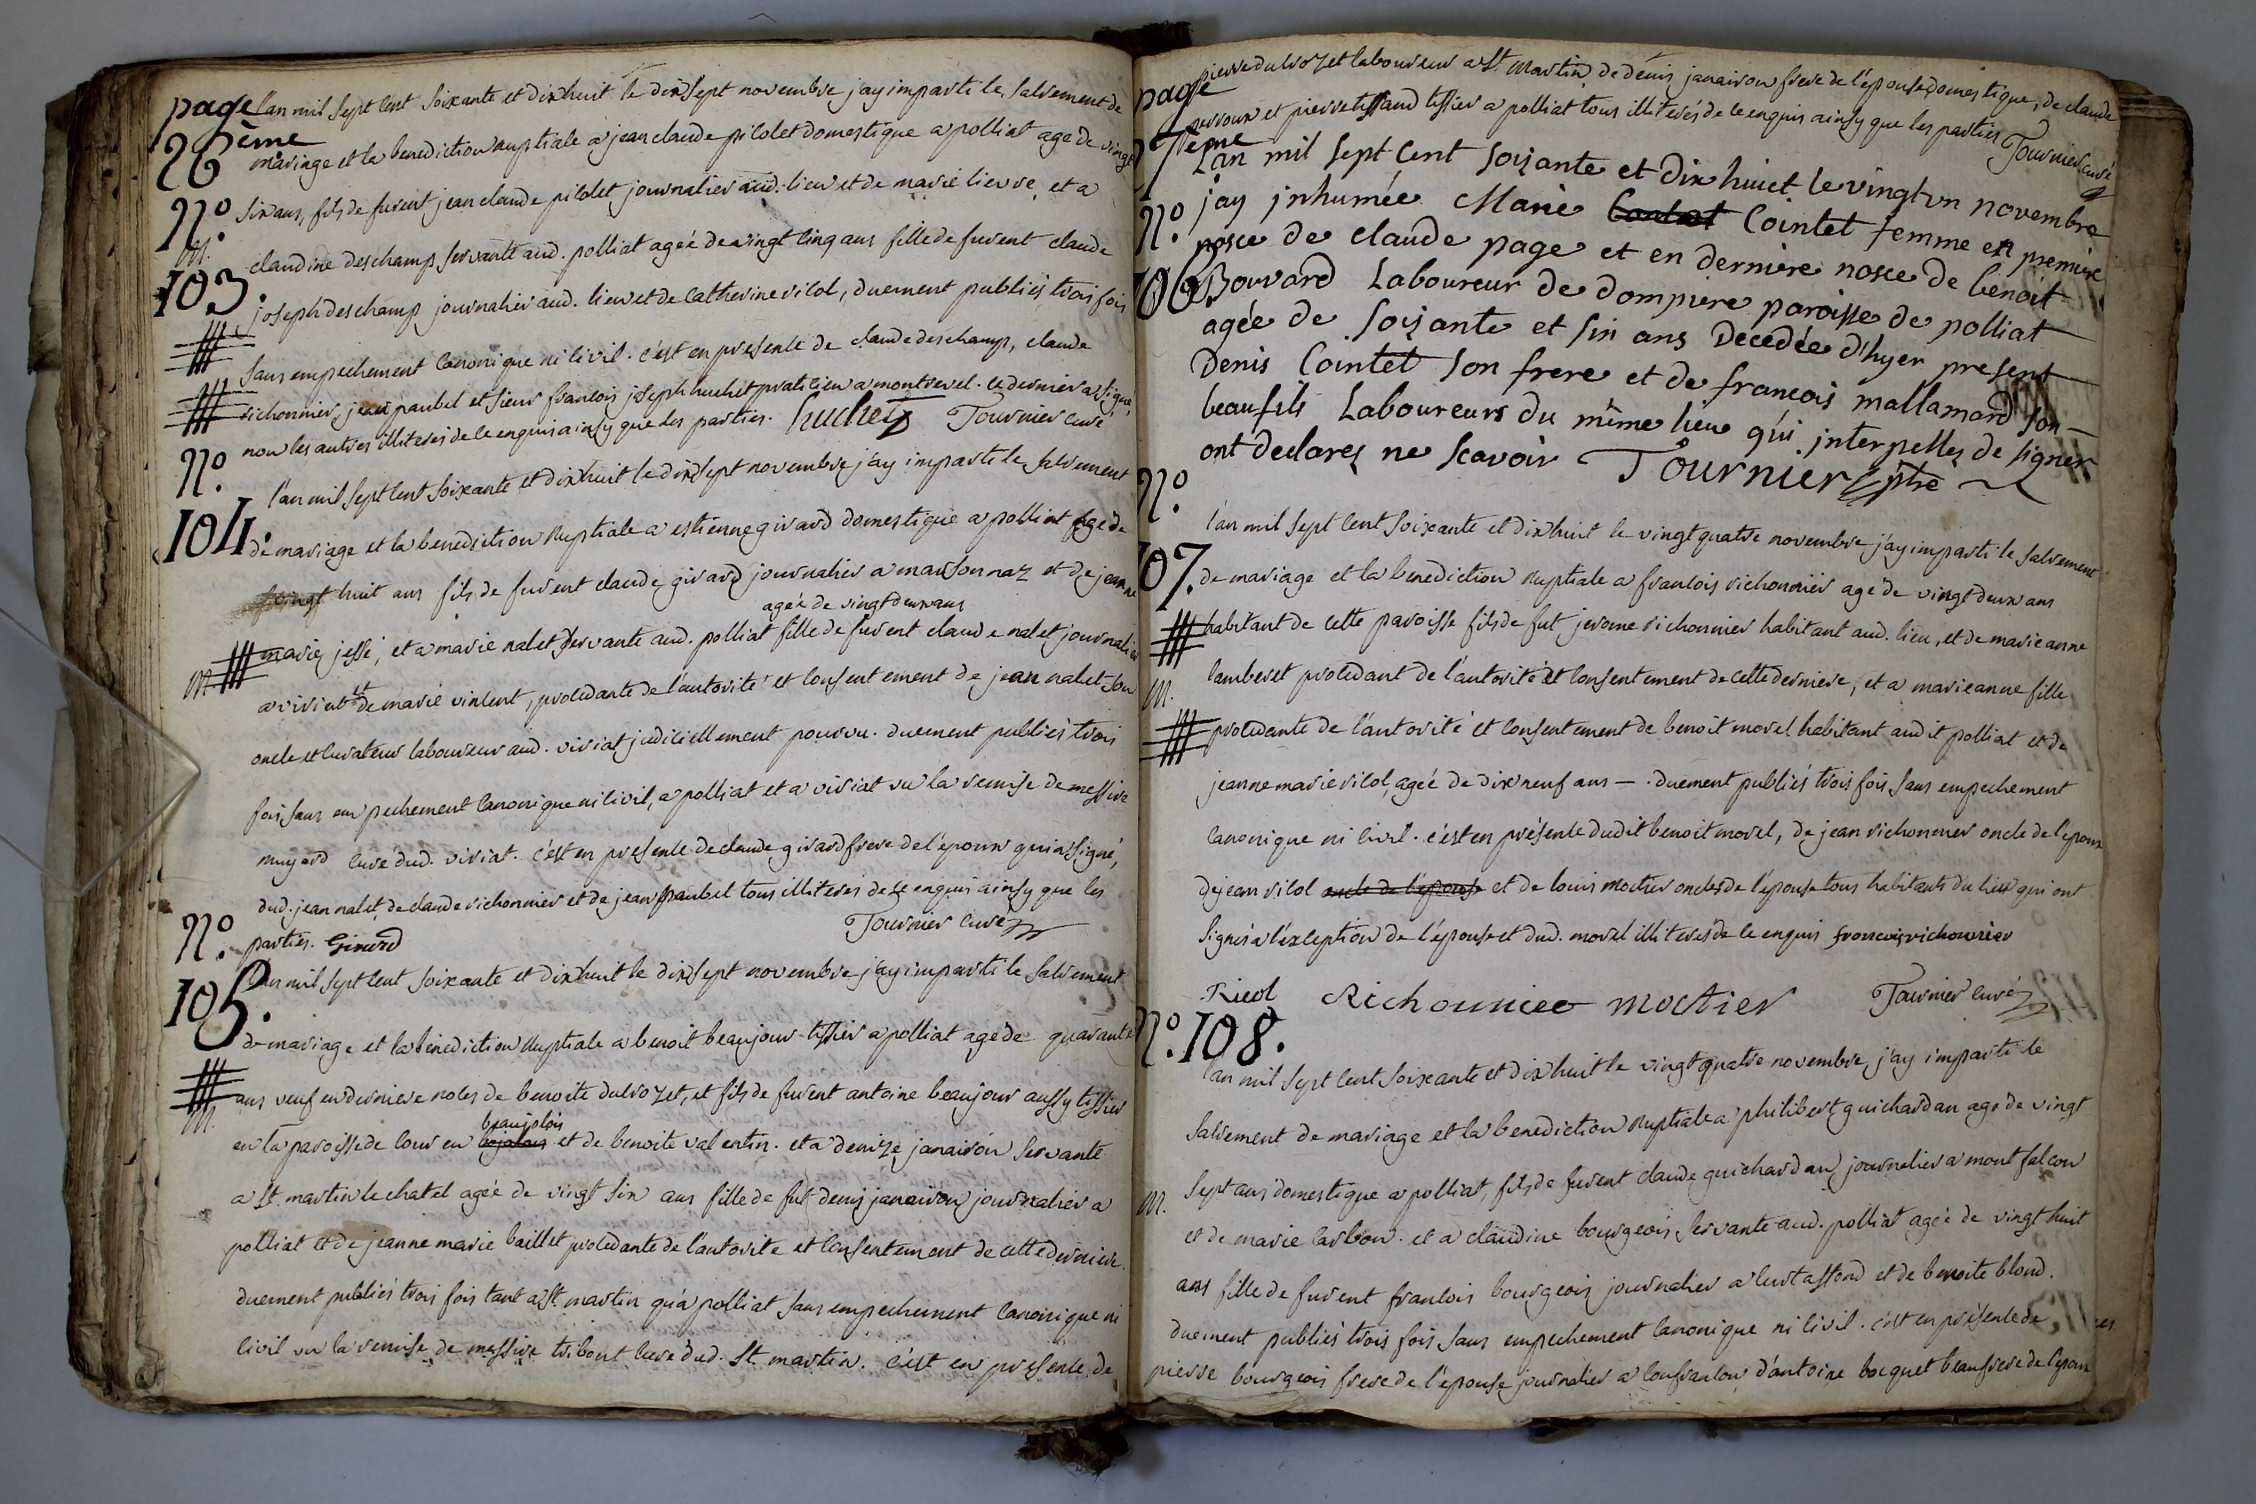 page
26ème
l'an mil sept cent soixante et dixhuit le dixsept novembre j'ay imparti le sacrement de
mariage et la benediction nuptiale a jean claude pilolet domestique a polliat agé de vingt
six ans, fils de furent jean claude pilolet journalier aud. lieu et de marie lievre et a
No.
M.
103.
claudine deschamp servante aud. polliat ageé de vingt cinq ans fille de furent claude
joseph deschamp journalier aud. lieu et de catherine vilol, duement publiés trois fois
sans empechement canonique ni civil. c'est en presence de claude deschamps, claude
richonnier, jean paubel et sieur francois joseph huchet praticien a montrevel. ce dernier a signé,
non les autres illiterés de ce enquis ainsy que les parties. huchet Tournier curé
No.
104.
l'an mil sept cent soixante et dixhuit le dixsept novembre j'ay imparti le sacrement
de mariage et la benediction nuptiale a estienne girard domestique a polliat agé de
vingt huit ans fils de furent claude girard journalier a marsonnaz et de jeanne
ageé de vingt deux ans
marie jesse, et a marie nalet servante aud. polliat fille de furent claude nalet journalier
M.
a viriat et de marie vincent, procedante de l'autorité et consentement de jean nalet son
oncle et curateur laboureur aud. viriat judiciellement pourvu. duement publiés trois
fois, sans empechement canonique ni civil, a polliat et a viriat vu la remise de messire
muyard curé dud. viriat. c'est en presence de claude girard frere de l'epoux qui a signé,
dud. jean nalet, de claude richonnier et de jean paubel tous illiterés de ce enquis ainsy que les
parties. Girard Tournier curé
No.
105.
L'an mil sept cent soixante et dixhuit le dixsept novembre j'ay imparti le sacrement
de mariage et la benediction nuptiale a benoit beaujour tissier a polliat agé de quarante
ans veuf en derniere noces de benoite dulrozet, et fils de furent antoine beaujour aussy tissier
M.
beaujolois
en la paroisse de cour en et de benoite valentin. et a denize janairon servante
a St. martin le chatel ageé de vingt six ans fille de fut denis janairon journalier a
polliat et de jeanne marie baillet procedante de l'autorite et consentement de cette derniere.
duement publiés trois fois tant a St. martin qu'a polliat sans empechement canonique ni
civil vu la remise de messire tribout curé dud. St. martin. c'est en presence de
page
27eme
pierre dulrozet laboureur a St. Martin de denis janairon frere de l'épouse domestique, de claude
perroux et pierre tissaud tissier a polliat tous illiterés de ce enquis ainsy que les parties Tournier curé
No.
106.
Lan mil sept cent soixante et dix huict le vingt un novembre
jay inhumée Marie Contet Cointet femme en premiere
nosce de claude page et en derniere nosce de benoit
Bouvard Laboureur de dompiere paroisse de polliat
agée de soixante et six ans Decedée d'hyer present
Denis Cointet son frere et de francois mallamard son
beaufils Laboureurs du même lieu qui interpellez de signer
ont declarez ne scavoir Tournier ptre
No.
107.
l'an mil sept cent soixante et dixhuit le vingt quatre novembre j'ay imparti le sacrement
de mariage et la benediction nuptiale a francois richonnier agé de vingt deux ans
habitant de cette paroisse fils de fut jerome richonnier habitant aud. lieu, et de marie anne
M.
lamberet procedant de l'autorité et consentement de cette derniere, et a marie anne fille
procedante de l'autorité et consentement de benoit morel habitant audit polliat et de
jeanne marie vilol, ageé de dix neuf ans — . duement publiés trois fois, sans empechement
canonique ni civil. c'est en présence dudit benoit morel, de jean richonnier oncle de l'epoux
de jean vilol oncle de l'epouse et de louis moctier oncles de l'épouse tous habitants du lieu qui ont
signés a l'exception de l'épouse et dud. morel illiterés de ce enquis francois richonnier
Ricol Richonnier moctier Tournier curé
No. 108.
l'an mil sept cent soixante et dixhuit le vingt quatre novembre, j'ay imparti le
sacrement de mariage et la benediction nuptiale a philibert guichardan agé de vingt
M.
sept ans domestique a polliat, fils de furent claude guichardan journalier a montfalcon
et de marie carbon. et a claudine bourgeois servante aud. polliat agée de vingt huit
ans fille de furent francois bourgeois journalier a curtafford et de benoite blond.
duement publiés trois fois, sans empechement canonique ni civil. c'est en présence de
pierre bourgeois frere de l'épouse journalier a confrancon d'antoine bocquet beaufrere de l'epoux